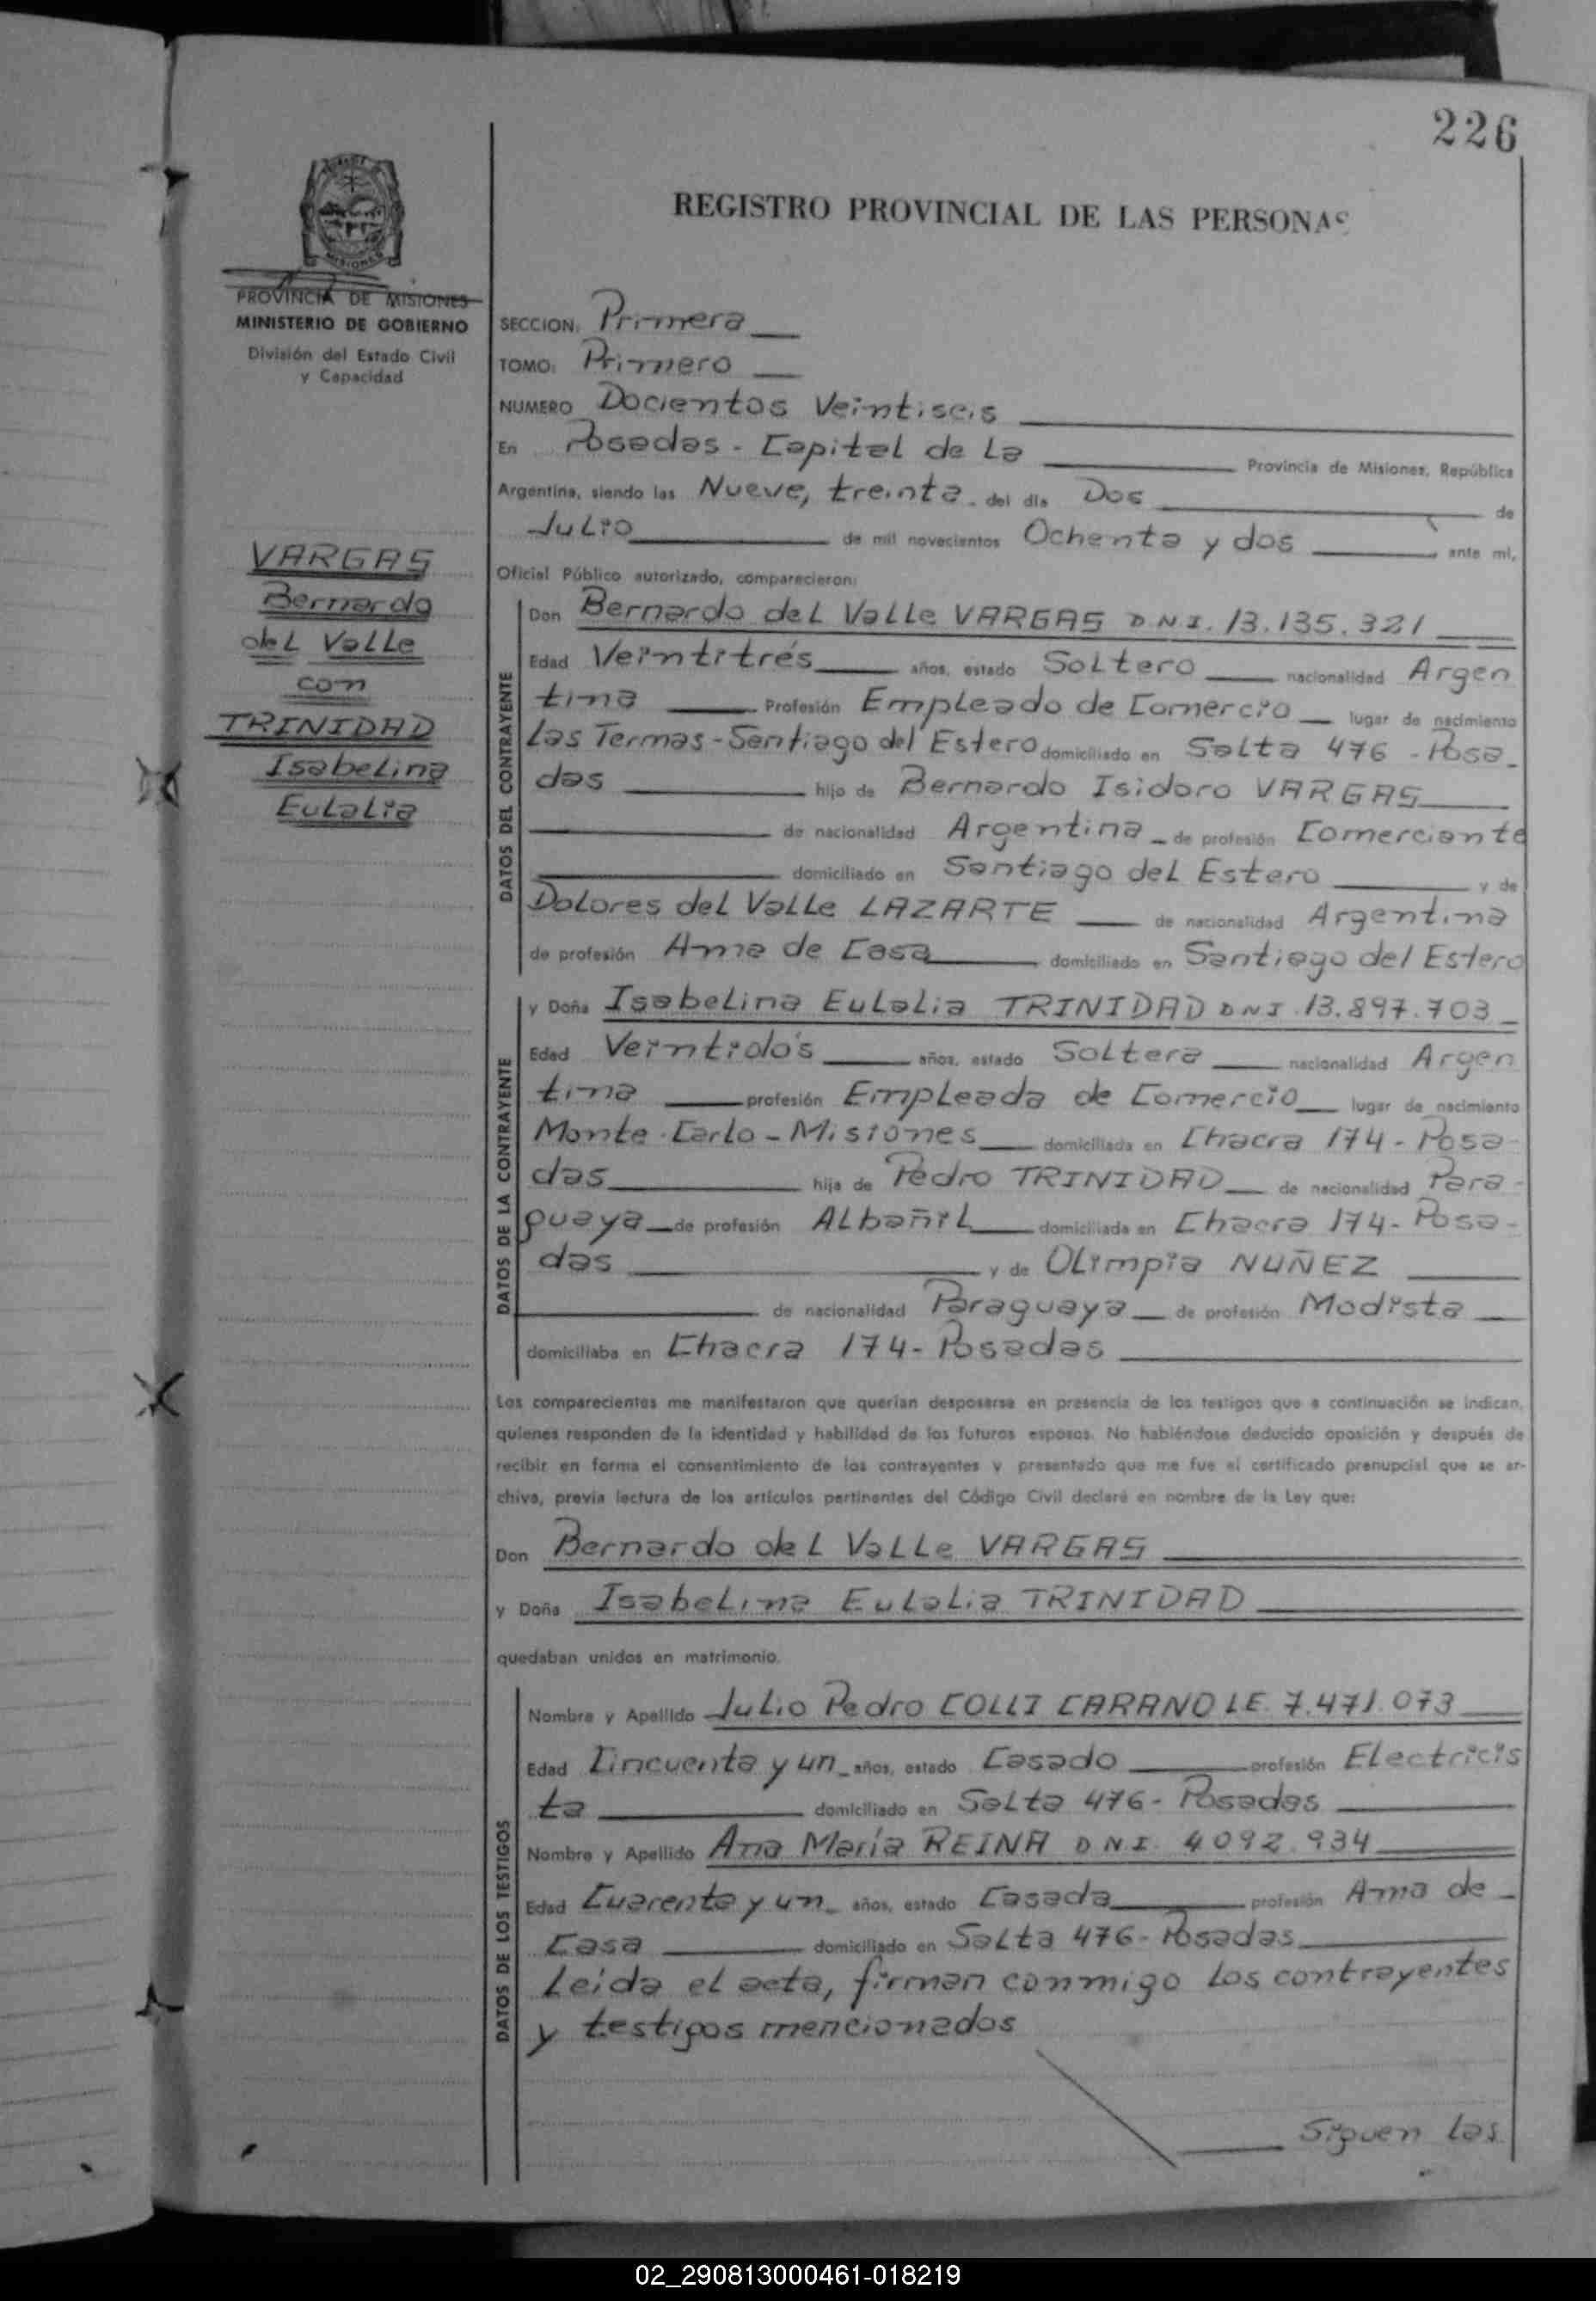 226
REGISTRO PROVINCIAL DE LAS PERSONAS
MISIONES
PROVINCIA DE MISIONES
MINISTERIO DE GOBIERNO
División del Estado Civil
y Capacidad
VARGAS
Bernardo
del Valle
con
TRINIDAD
Isabelina
Eulalia
SECCION: Primera
TOMO: Primero
NUMERO Docientos Veintiseis
En Posadas - Capital de La Provincia de Misiones, República
Argentina, siendo las Nueve, treinta del día Dos de
Julio de mil novecientos Ochenta y dos ante mí,
Oficial Público autorizado, comparecieron:
DATOS DEL CONTRAYENTE
Don Bernardo del Valle VARGAS D.N.I. 13.135.321
Edad Veintitrés años, estado Soltero nacionalidad Argen
tina Profesión Empleado de Comercio lugar de nacimiento
Las Termas - Santiago del Estero domiciliado en Salta 476 - Posa-
das hijo de Bernardo Isidoro VARGAS
de nacionalidad Argentina de profesión Comerciante
domiciliado en Santiago del Estero y de
Dolores del Valle LAZARTE de nacionalidad Argentina
de profesión Ama de Casa domiciliado en Santiago del Estero
DATOS DE LA CONTRAYENTE
y Doña Isabelina Eulalia TRINIDAD DNI 13.897.703
Edad Veintidós años, estado Soltera nacionalidad Argen
tina profesión Empleada de Comercio lugar de nacimiento
Monte Carlo - Misiones domiciliada en Chacra 174 - Posa-
das hija de Pedro TRINIDAD de nacionalidad Para-
guaya de profesión Albañil domiciliada en Chacra 174 - Posa-
das y de Olimpia NUÑEZ
de nacionalidad Paraguaya de profesión Modista
domiciliaba en Chacra 174 - Posadas
Los comparecientes me manifestaron que querían desposarse en presencia de los testigos que a continuación se indican,
quienes responden de la identidad y habilidad de los futuros esposos. No habiéndose deducido oposición y después de
recibir en forma el consentimiento de los contrayentes y presentado que me fue el certificado prenupcial que se ar-
chiva, previa lectura de los artículos pertinentes del Código Civil declaré en nombre de la Ley que:
Don Bernardo del Valle VARGAS
y Doña Isabelina Eulalia TRINIDAD
quedaban unidos en matrimonio.
DATOS DE LOS TESTIGOS
Nombre y Apellido Julio Pedro COLLI CARANO LE. 7.471.073
Edad Cincuenta y un años, estado Casado profesión Electricis
ta domiciliado en Salta 476 - Posadas
Nombre y Apellido Ana María REINA DNI. 4092.934
Edad Cuarenta y un años, estado Casada profesión Ama de
Casa domiciliado en Salta 476 - Posadas
Leida el acta, firman conmigo los contrayentes
y testigos mencionados
Siguen las
02_290813000461-018219